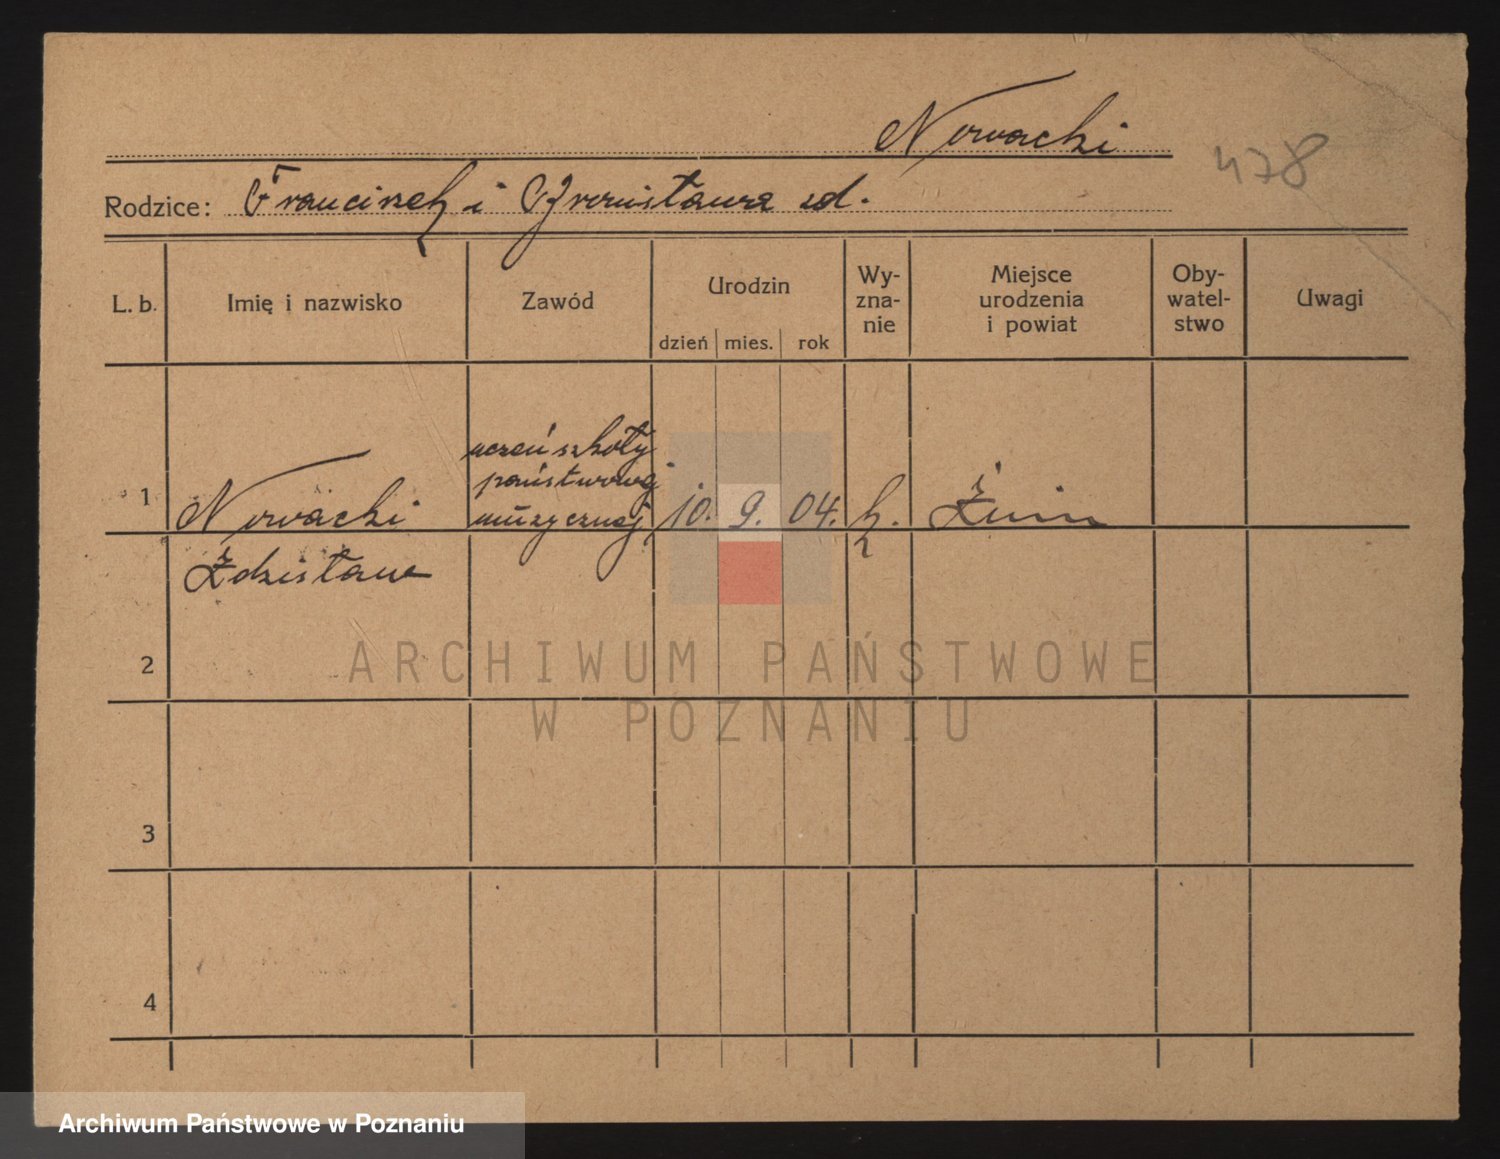 Nowacki
478
Rodzice: Franciszek i Bronisława zd.
L. b. Imię i nazwisko Zawód Urodzin dzień mies. rok Wy-zna-nie Miejsce urodzenia i powiat Oby-watel-stwo Uwagi
uczeń szkoły
państwowej
1 Nowacki muzycznej 10. 9. 04. k. Żnin
Zdzisław
2
ARCHIWUM PAŃSTWOWE
W POZNANIU
3
4
Archiwum Państwowe w Poznaniu